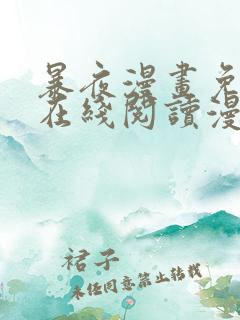 暴夜漫畫免
在綫閱讀漫
裙子
未经同意禁止转载